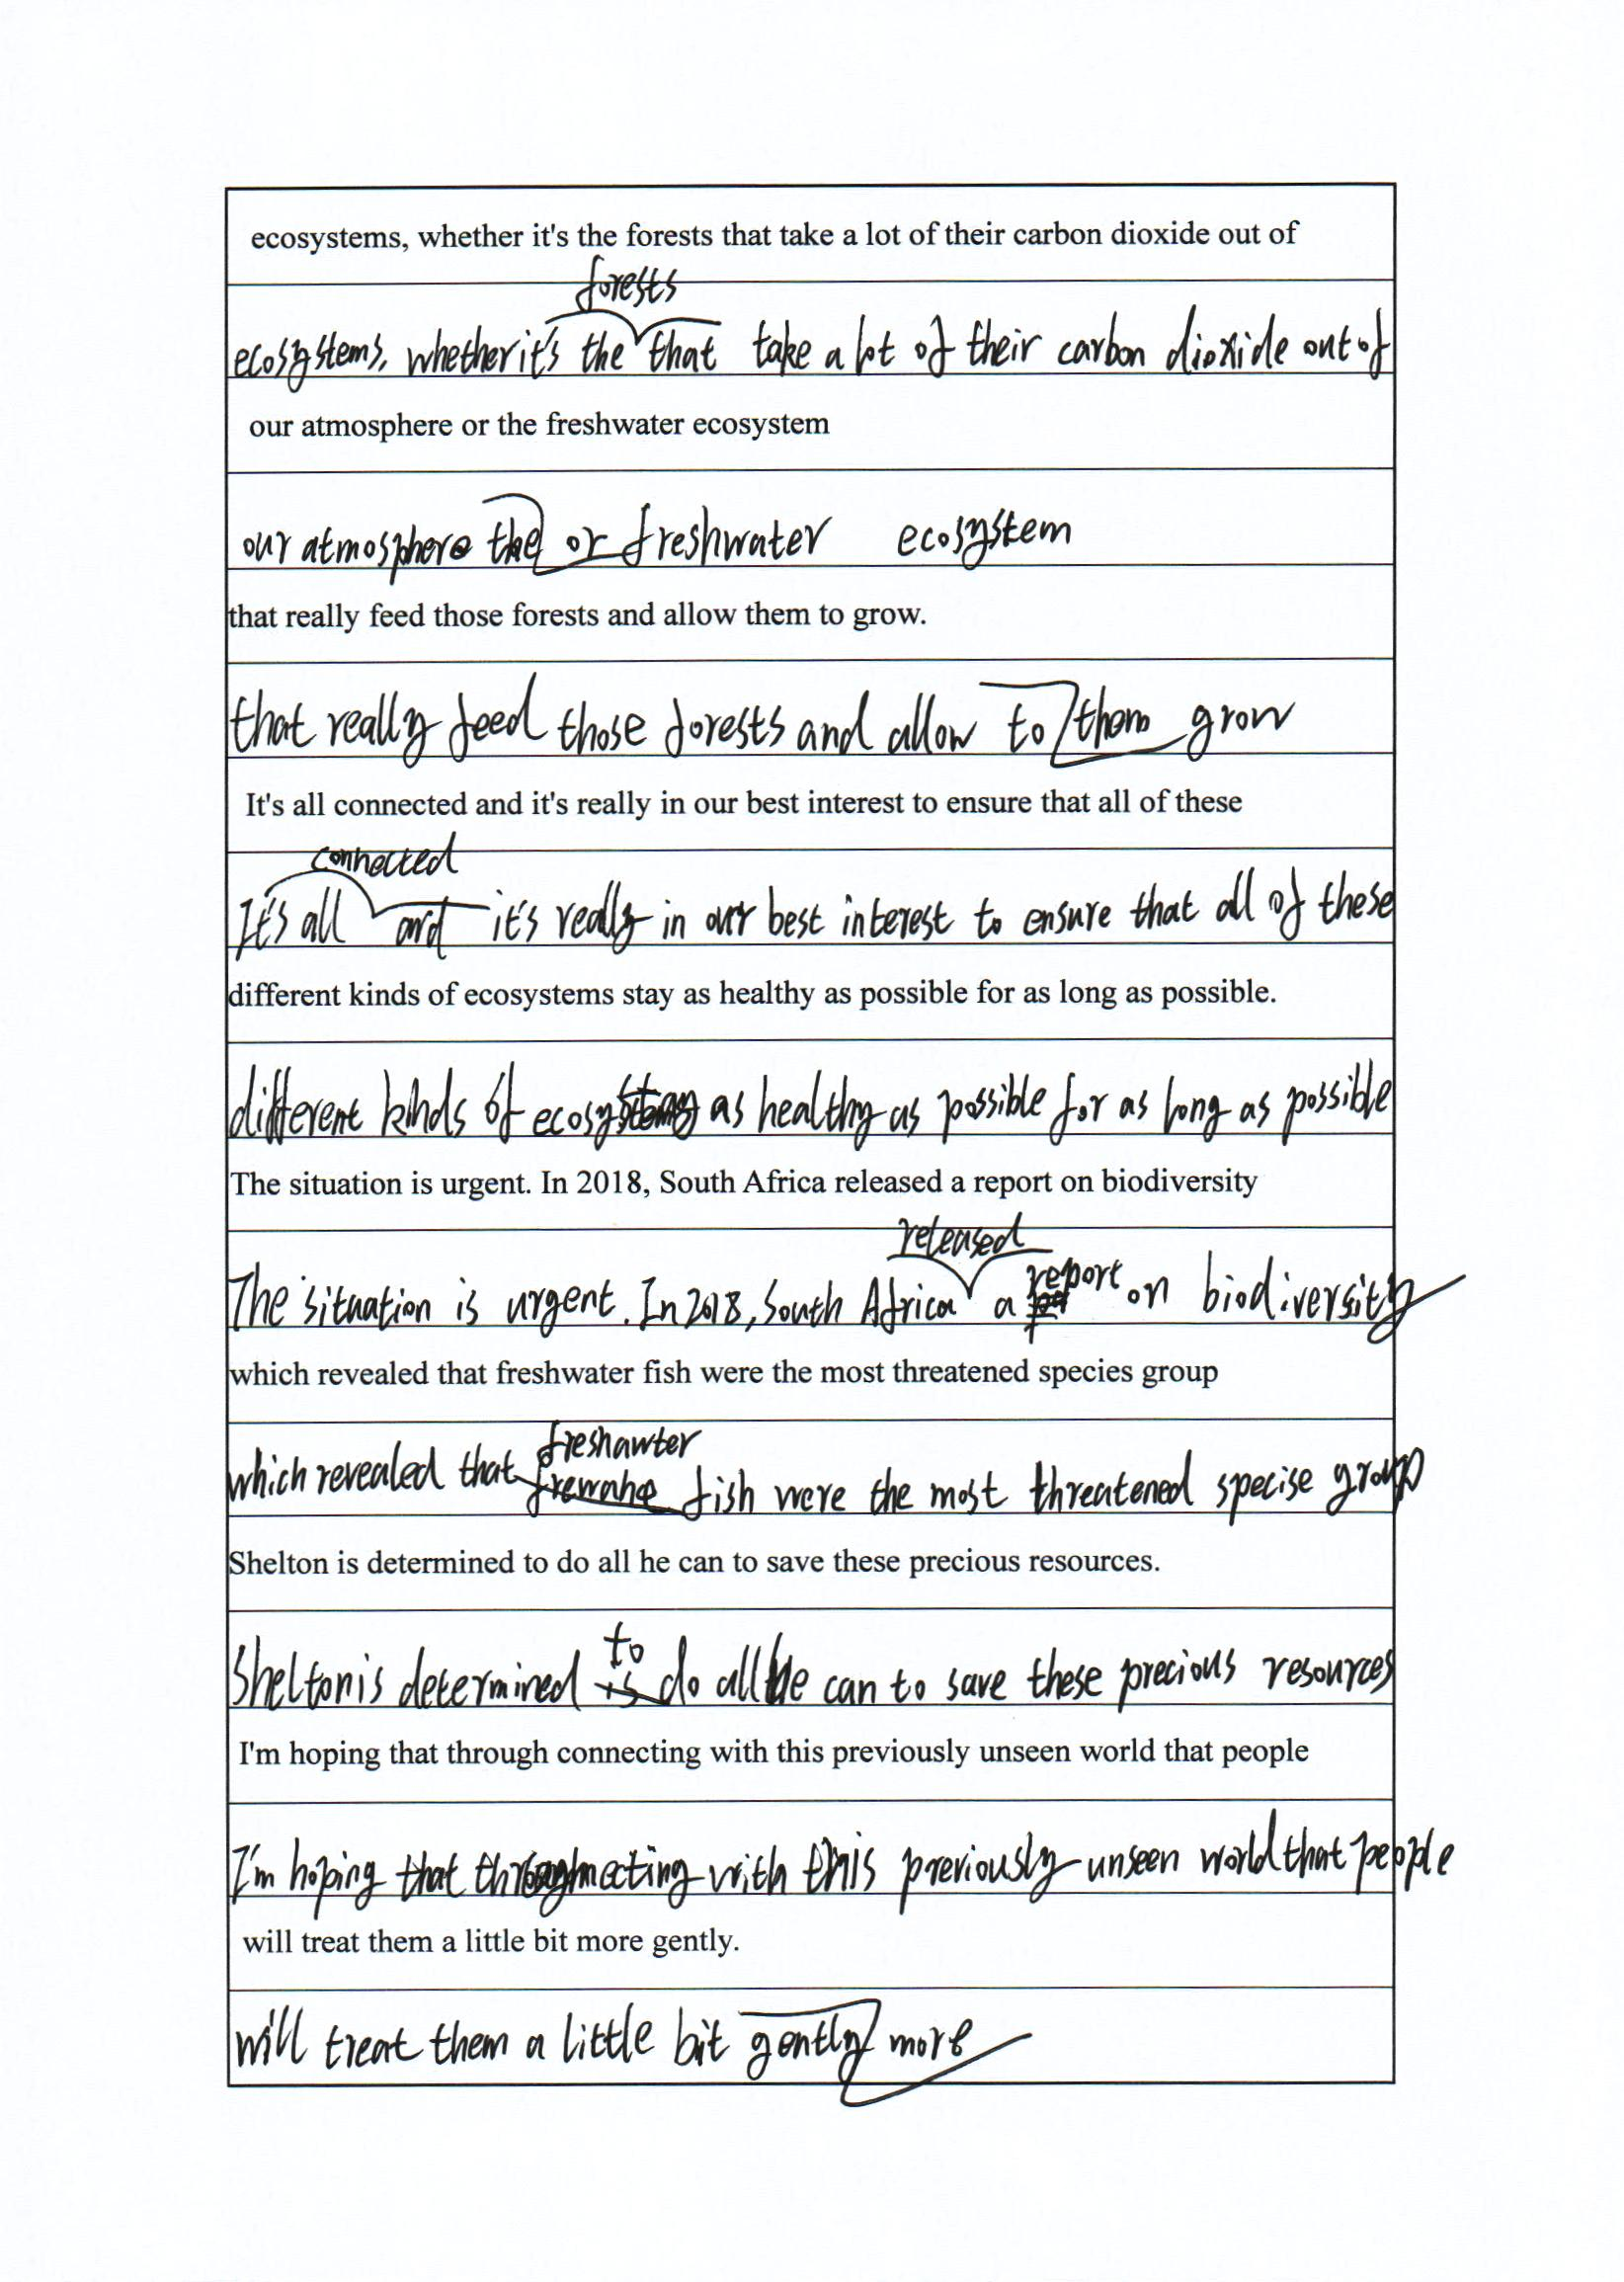 ecosystems, whether it's the forests that take a lot of their carbon dioxide out of
ecosystems, whether it's the forests that take a lot of their carbon dioxide out of
our atmosphere or the freshwater ecosystem
our atmosphere or the freshwater ecosystem
that really feed those forests and allow them to grow.
that really feed those forests and allow them to grow
It's all connected and it's really in our best interest to ensure that all of these
It's all connected and it's really in our best interest to ensure that all of these
different kinds of ecosystems stay as healthy as possible for as long as possible.
different kinds of as healthy as possible for as long as possible
The situation is urgent. In 2018, South Africa released a report on biodiversity
The situation is urgent. In 2018, South Africa released a report on biodiversity
which revealed that freshwater fish were the most threatened species group
which revealed that freshawter fish were the most threatened specise group
Shelton is determined to do all he can to save these precious resources.
Shelton is determined to do all he can to save these precious resources
I'm hoping that through connecting with this previously unseen world that people
I'm hoping that with this previously unseen world that people
will treat them a little bit more gently.
will treat them a little bit more gently